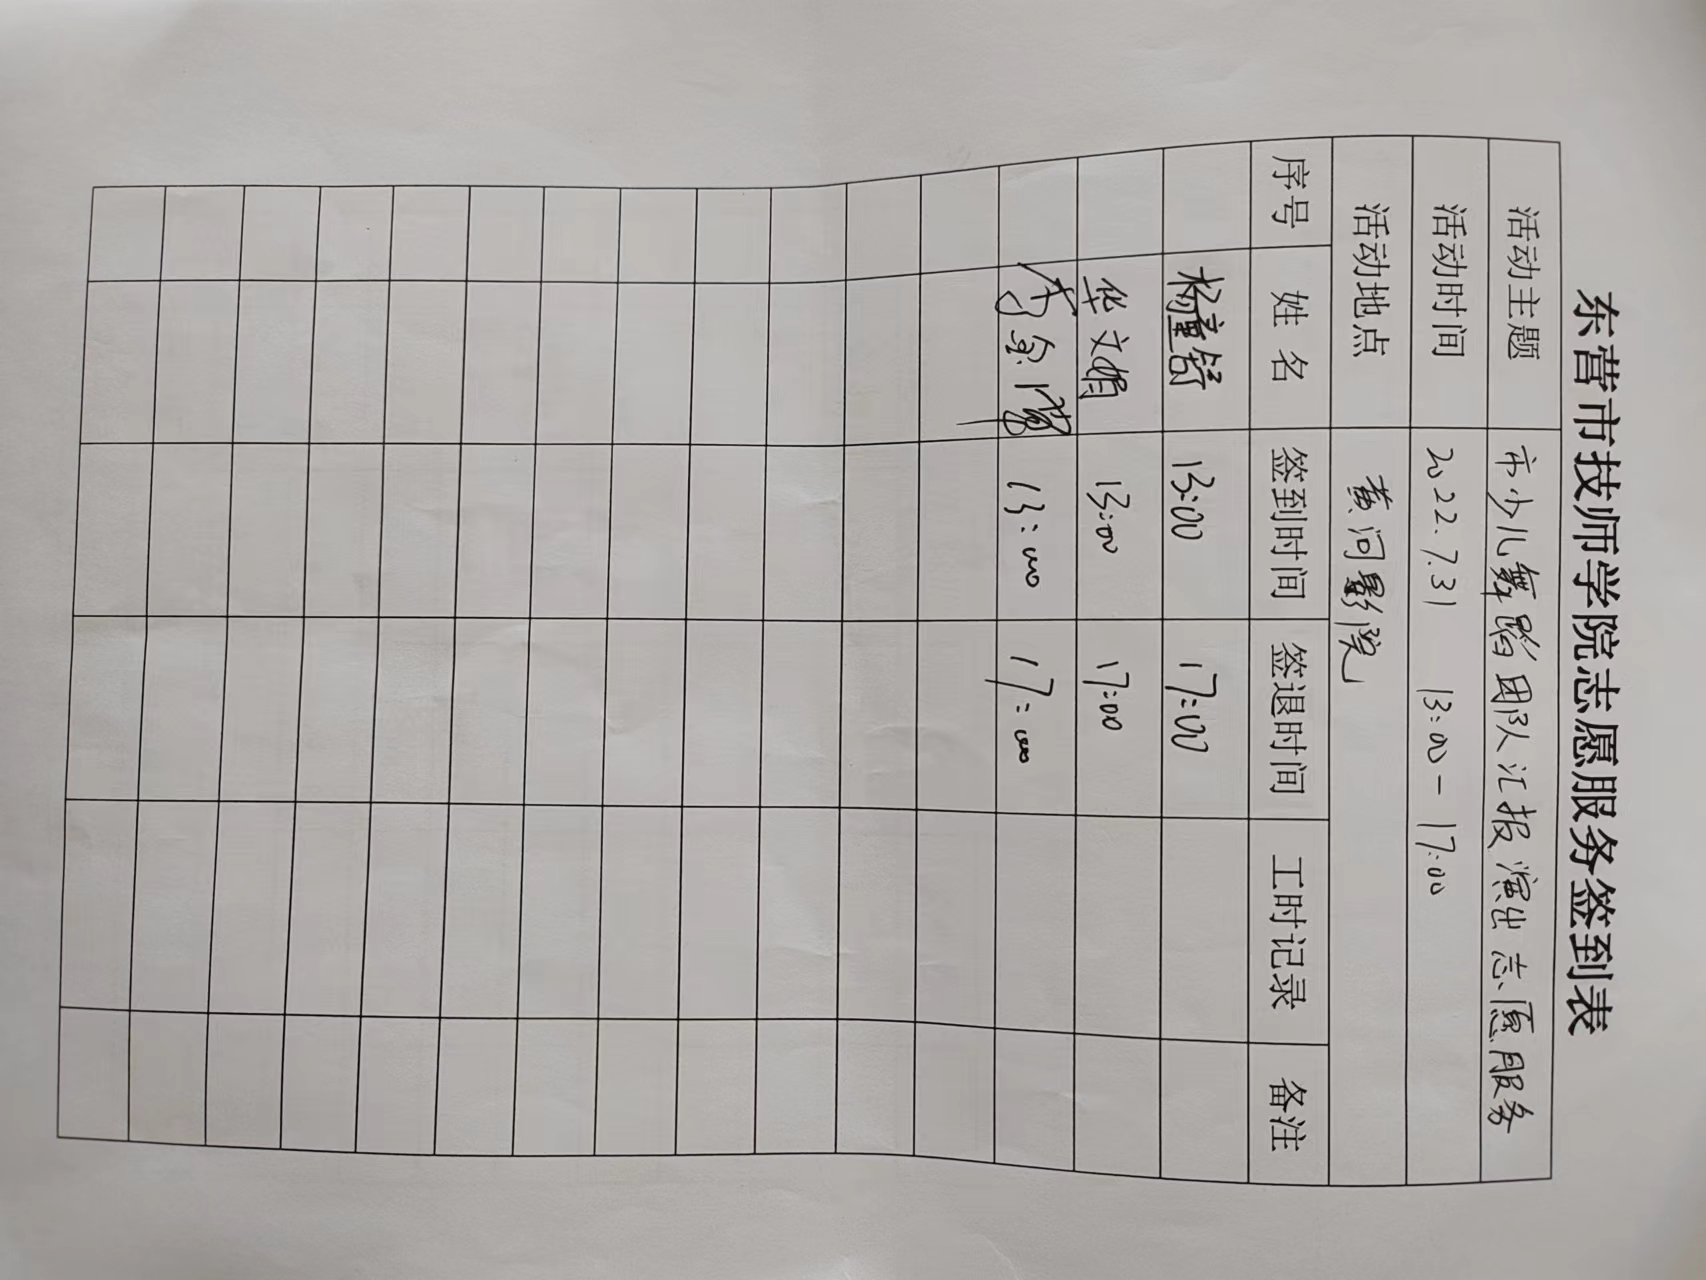 东营市技师学院志愿服务签到表
活动主题 市少儿舞蹈团队汇报演出志愿服务
活动时间 2022.7.31 13:00-17:00
活动地点 黄河影院
序号 姓名 签到时间 签退时间 工时记录 备注
杨童舒 13:00 17:00
华文娟 13:00 17:00
13:00 17:00